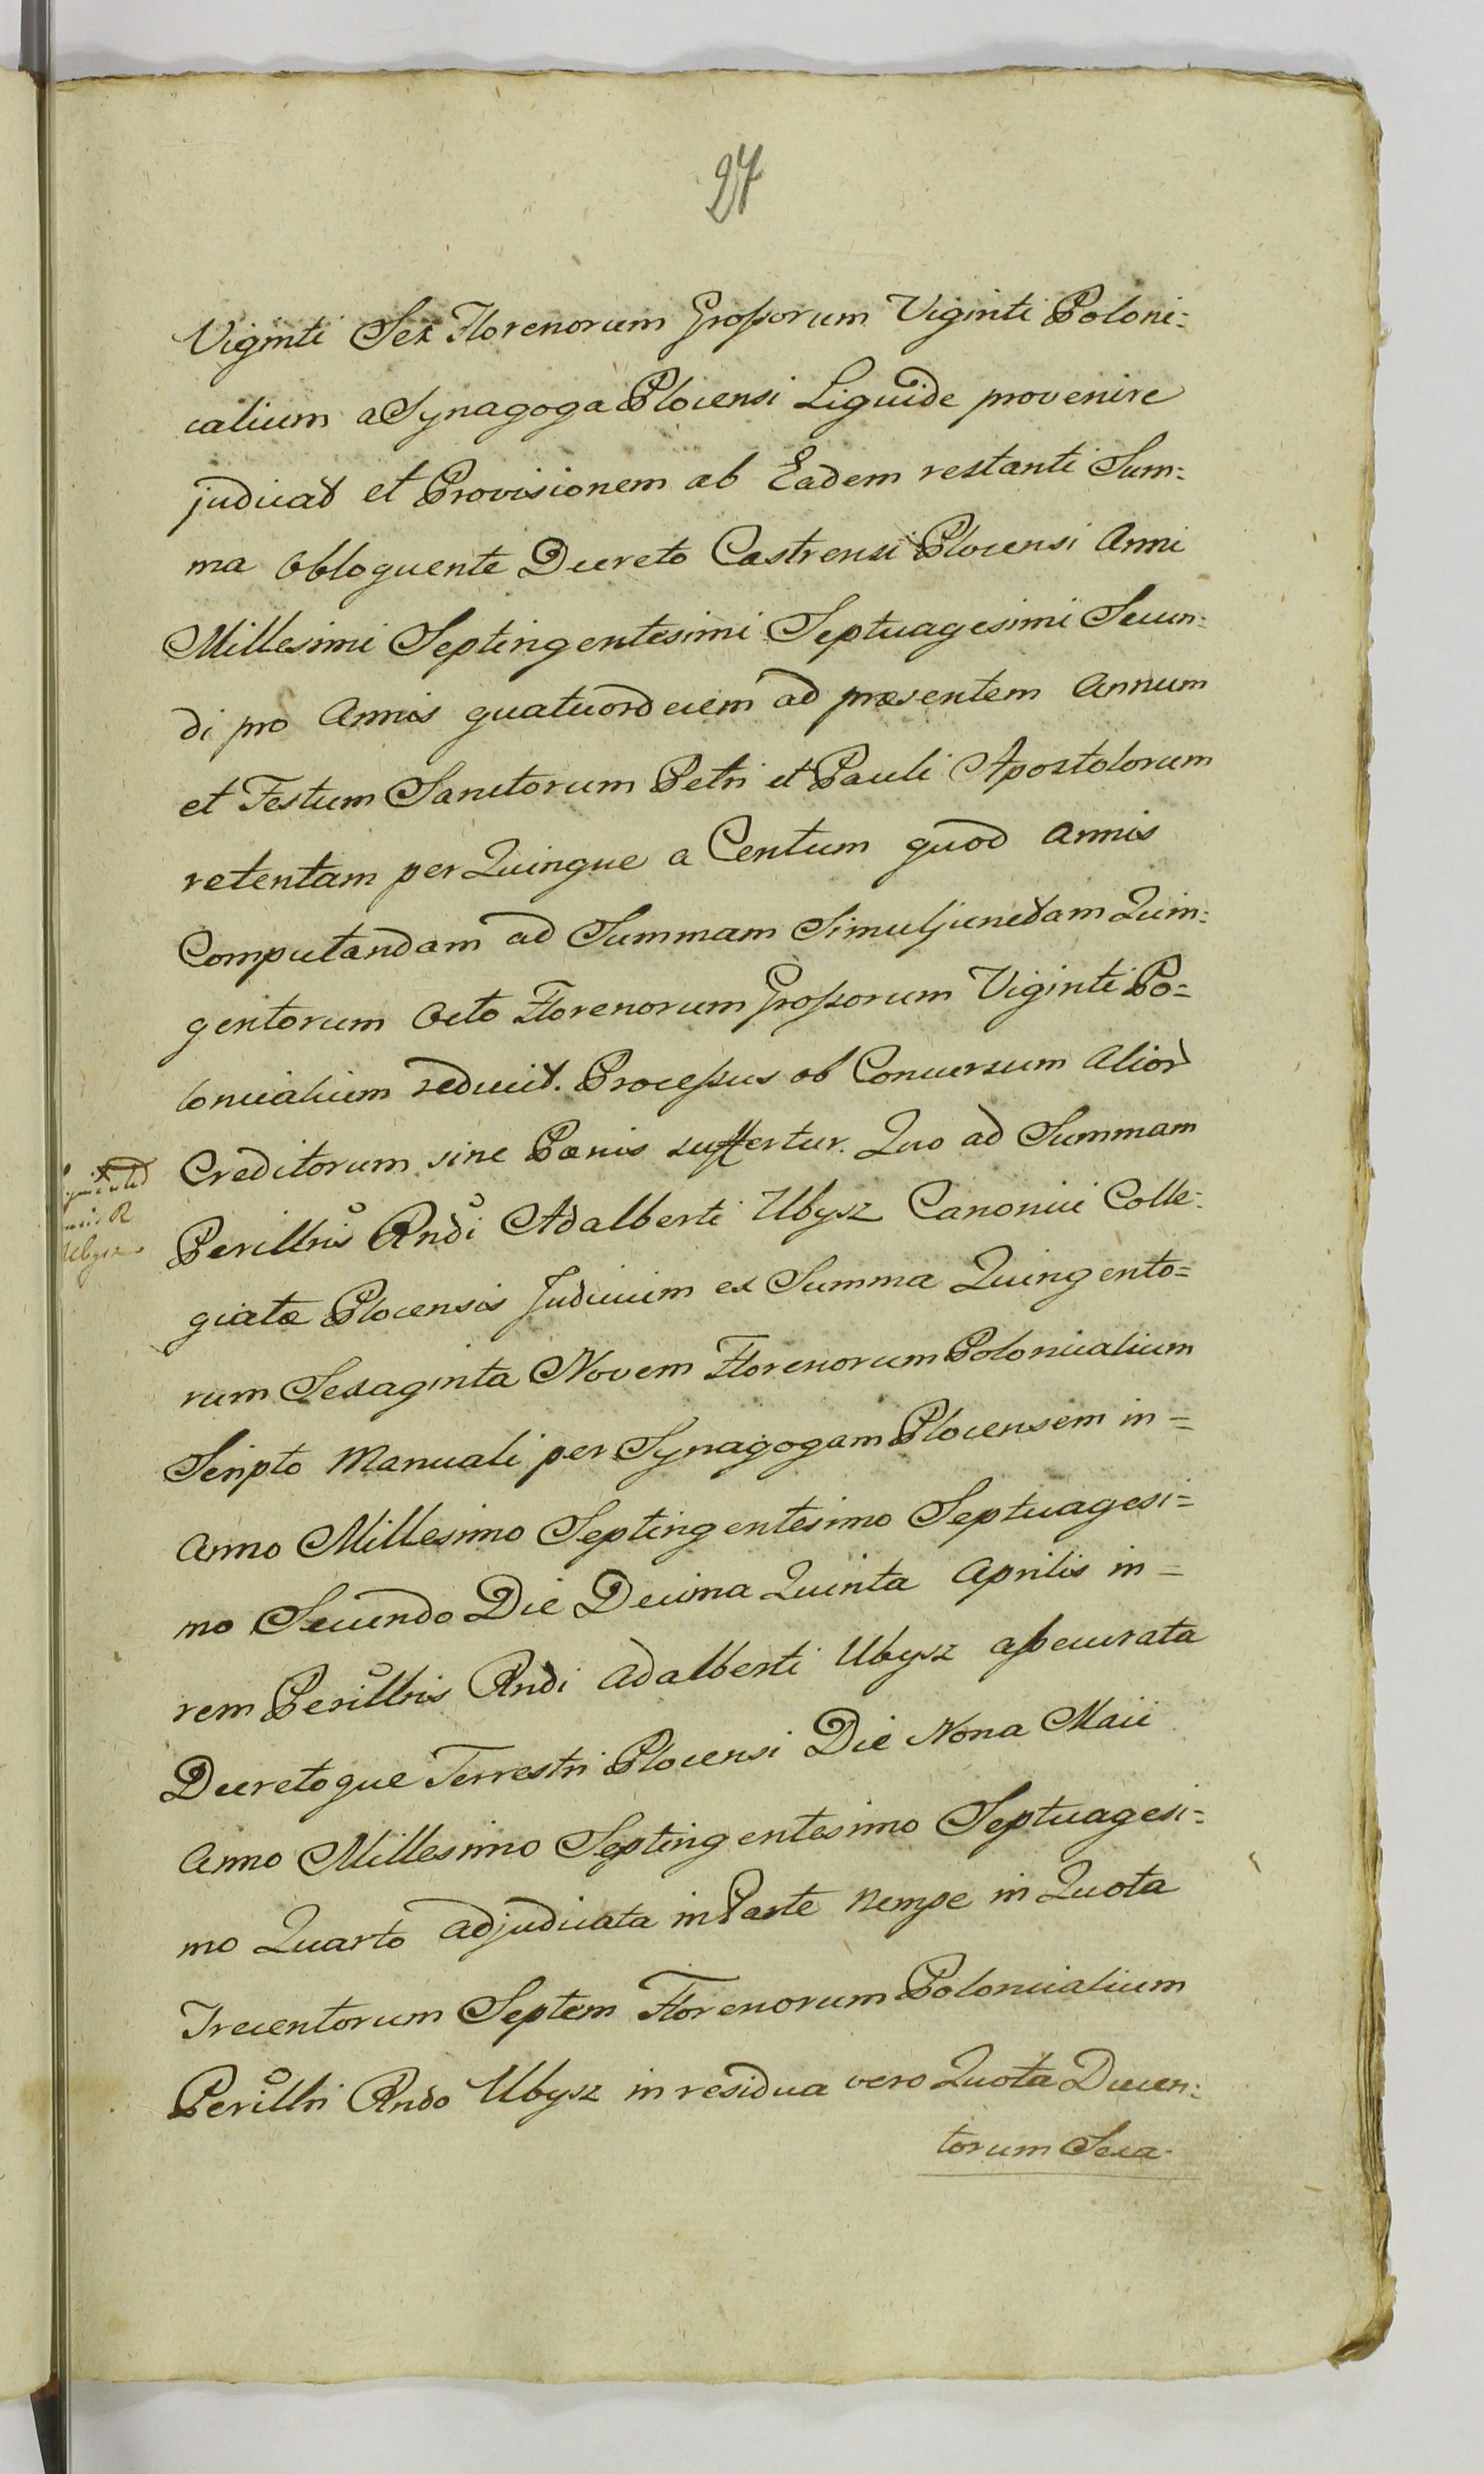 27
Viginti Sex Florenorum Grossorum Viginti Poloni=
calium a Synagoga Plocensi Liquide provenire
judicat et Provisionem ab Eadem restanti Sum=
ma Obloquente Decreto Castrensi Plocensi Anni
Millesimi Septingentesimi Septuagesimi Secun=
di pro Annis quatuordecim ad præsentem Annum
et Festum Sanctorum Petri et Pauli Apostolorum
retentam per Quinque a Centum quod Annis
Computandam ad Summam Simul junctam Quin=
gentorum Octo Florenorum Grossorum Viginti Po=
lonicalium reducit. Processus ob Concursum Alior
Creditorum sine Pœnis suffertur. Quo ad Summam
Perillris Rndi Adalberti Ubysz Canonici Colle=
giatæ Plocensis Judicium ex Summa Quingento=
rum Sexaginta Novem Florenorum Polonicalium
Scripto Manuali per Synagogam Plocensem in=
Anno Millesimo Septingentesimo Septuagesi=
mo Secundo Die Decima Quinta Aprilis in=
rem Perillris Rndi Adalberti Ubysz assecurata
Decretoque Terrestri Plocensi Die Nona Maii
Anno Millesimo Septingentesimo Septuagesi=
mo Quarto adjudicata in Parte nempe in Quota
Trecentorum Septem Florenorum Polonicalium
Perillri Rndo Ubysz in residua vero Quota Ducen=
torum Sexa-
R
Ubysz